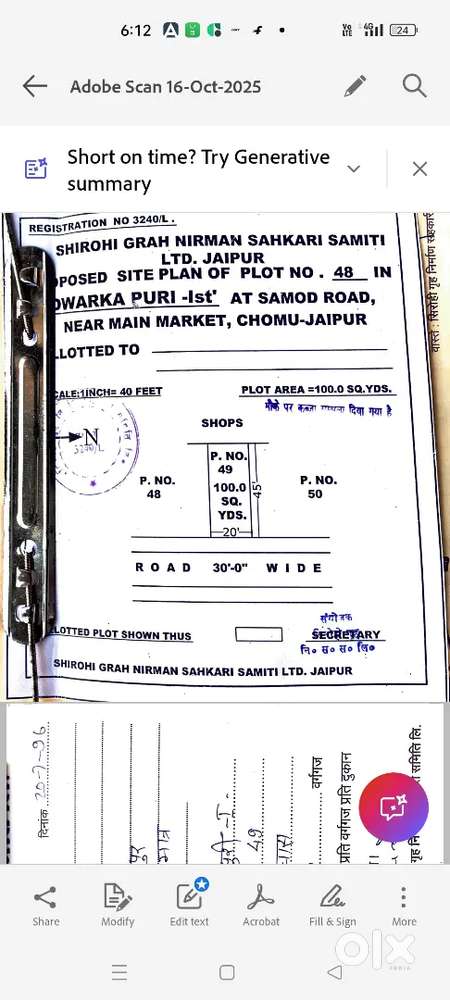 6:12
Vo LTE 4G 24
Adobe Scan 16-Oct-2025
Short on time? Try Generative
summary
REGISTRATION NO 3240/L.
SHIROHI GRAH NIRMAN SAHKARI SAMITI
LTD. JAIPUR
OPOSED SITE PLAN OF PLOT NO. 48 IN
DWARKA PURI -Ist' AT SAMOD ROAD,
NEAR MAIN MARKET, CHOMU-JAIPUR
LLOTTED TO
CALE:1INCH= 40 FEET
PLOT AREA =100.0 SQ.YDS.
मौके पर कब्जा दिया गया है
SHOPS
N
3240/L
P. NO.
48
P. NO.
49
100.0
SQ.
YDS.
45'
20'
P. NO.
50
ROAD 30'-0" WIDE
LLOTTED PLOT SHOWN THUS
संयोजक
SECRETARY
नि० स० स० लि०
SHIROHI GRAH NIRMAN SAHKARI SAMITI LTD. JAIPUR
वास्ते : सिरोही गृह निर्माण सहकारी
दिनांक 20-7-96
49
वर्गगज
प्रति वर्गगज प्रति दुकान
गृह नि समिति लि.
Share
Modify
Edit text
Acrobat
Fill & Sign
More
olx
INDIA